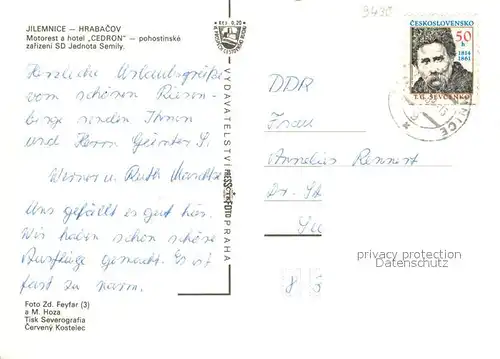 JILEMNICE — HRABAČOV
Motorest a hotel „CEDRON" — pohostinské
zařízení SD Jednota Semily.
Kčs 0,20
Herzliche Urlaubsgrüße
vom schönen Riesen-
birge senden Ihnen
und Herrn Günter S.
Werner u. Ruth
Uns gefällt es gut hier.
Wir haben schon schöne
Ausflüge gemacht. Es ist
fast zu warm.
Foto Zd. Feyfar (3)
a M. Hoza
Tisk Severografia
Červený Kostelec
VYDAVATELSTVÍ PRESSFOTO PRAHA
9430
ČESKOSLOVENSKO
50
h
1814
1861
T. G. ŠEVČENKO
DDR
Frau
Annelies Rennert
Dr. St
8
privacy protection
Datenschutz